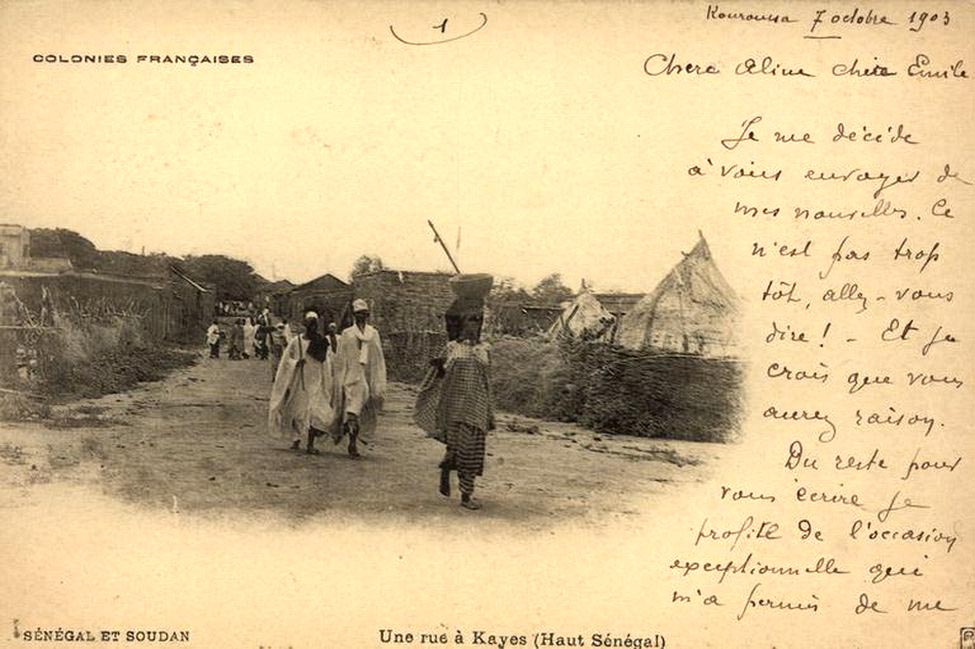 1
Kouroussa 7 octobre 1903
COLONIES FRANÇAISES
Chère Aline cher Emile
Je me décide
à vous envoyer de
mes nouvelles. Ce
n'est pas trop
tôt, allez-vous
dire! - Et je
crois que vous
aurez raison.
Du reste pour
vous écrire je
profite de l'occasion
exceptionnelle qui
m'a permis de me
SÉNÉGAL ET SOUDAN
Une rue à Kayes (Haut Sénégal)